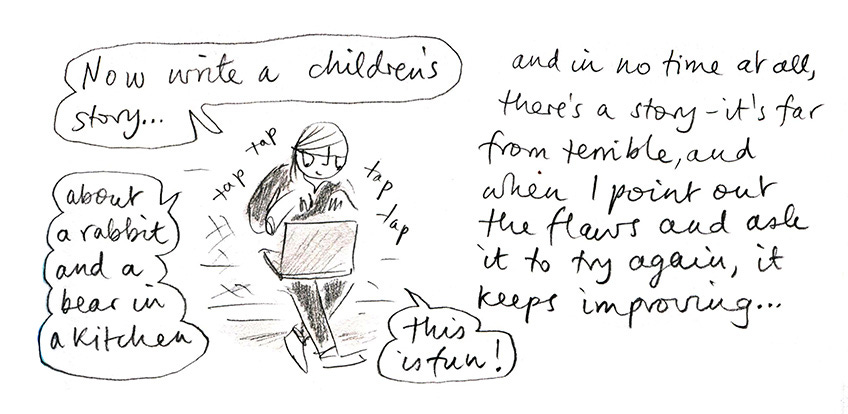 Now write a children's
story...
tap tap
tap
tap
about
a rabbit
and a
bear in
a kitchen
this
is fun!
and in no time at all,
there's a story - it's far
from terrible, and
when I point out
the flaws and ask
it to try again, it
keeps improving...